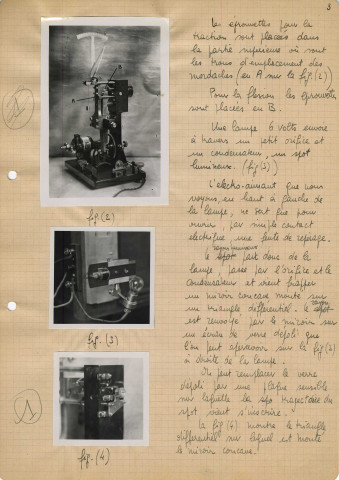 3
Les eprouvettes pour la
traction sont placées dans
la partie superieure où sont
les trous d'emplacement des
mordaches (en A sur la fig. (2)
Pour la flexion les eprouvettes
sont placées en B.
Une lampe 6 volts envoie
à travers un petit orifice et
un condensateur, un spot
lumineux. (fig (3))
L'electro-aimant que nous
voyons, en haut à gauche de
la lampe, ne sert que pour
ouvrir, par simple contact
electrique, une fente de reperage.
rayon lumineux
le spot part donc de la
lampe, passe par l'orifice et le
condensateur et vient frapper
un miroir concave monté sur
rayon
un triangle differentiel. le spot
est renvoyé par le miroir sur
un écran de verre depoli que
l'on peut apercevoir sur la fig (2)
à droite de la lampe.
On peut remplacer le verre
depoli par une plaque sensible
sur laquelle la trajectoire du
spot vient s'inscrire.
la fig (4) montre le triangle
differentiel sur lequel est monté
le miroir concave.
fig. (2)
fig. (3)
fig. (4)